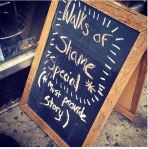 Walks of
Shame
Special *
(* must provide
Story)